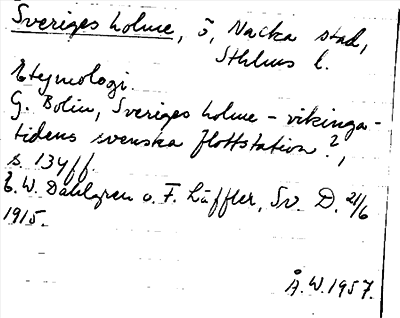 Sveriges holme, ö, Nacka stad,
Sthlms l.
Etymologi.
G. Bolin, Sveriges holme - vikinga-
tidens svenska flottstation?,
s. 134ff.
E. W. Dahlgren o. F. Läffler, Sv. D. 21/6
1915.
Å.W. 1957.